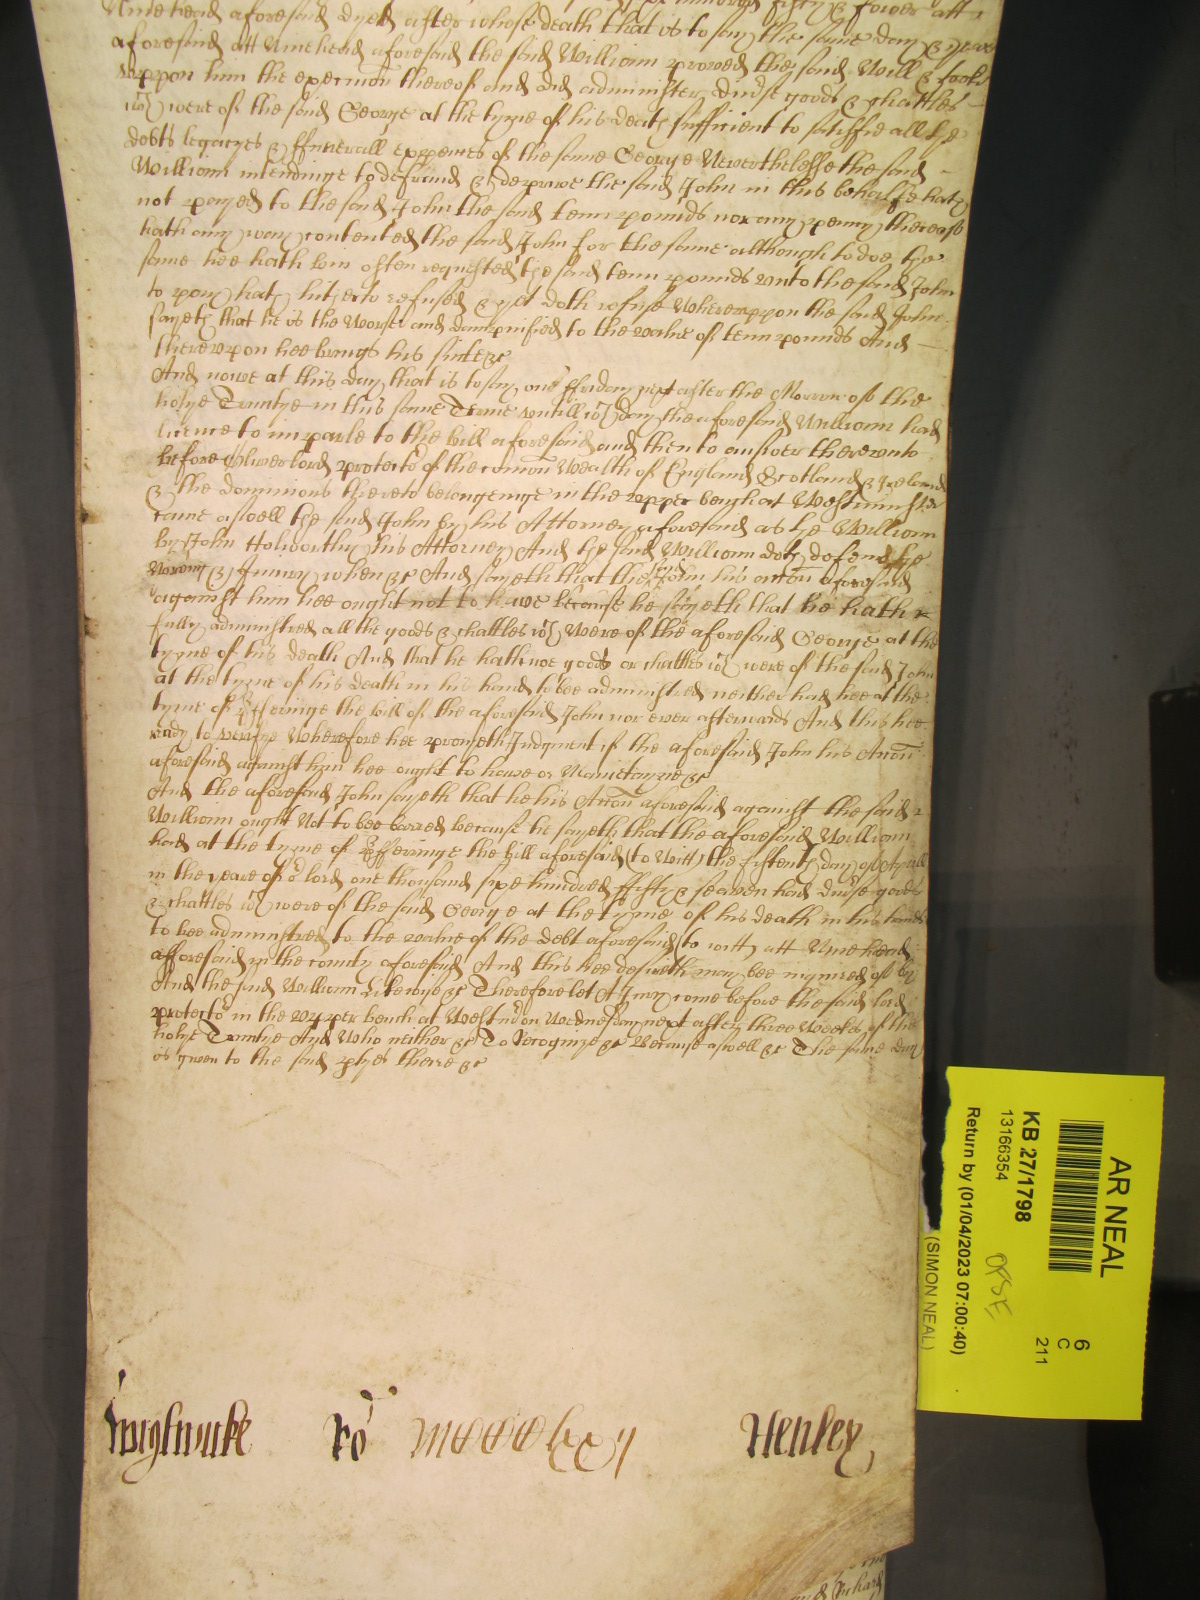 hundred fifty & fower att
Minehead aforesaid dyed after whose death that is to say the same day & yeare
aforesaid att Minehead aforesaid the said William proved the said Will & tooke
uppon him the execucon thereof and did administer divse goods & chattles
wch were of the said George at the tyme of his death sufficient to satisfie all the
debts legacyes & ffunerall expences of the same George Neverthelesse the said
William intendinge to defraud & deprive the said John in this behalfe hath
not payed to the said John the said tenn pounds nor any penny thereof
hath any way contented the said John for the same although to doe the
same hee hath bin often requested the said tenn pounds unto the said John
to pay hath hitherto refused & yet doth refuse Whereuppon the said John
sayeth that he is the Worse and dampnified to the value of tenn pounds And
thereupon hee brings his suite &c
And nowe at this day that is to say one ffriday next after the Morrow of the
holye Trinitye in this same Terme untill wch day the aforesaid William had
licence to imparle to the bill aforesaid and then to answer thereunto
before Oliver lord protector of the comon Wealth of England Scotland & Ireland
& the dominions thereto belongeinge in the upper bench at Westminster
came aswell the said John by his Attorney aforesaid as the William
by John Holworthy his Attorney And the said William doth defend the
Wrong & Injury when &c And sayeth that the said John his accon aforesaid
against him hee ought not to have because he sayeth that he hath
fully administred all the goods & chattles wch Were of the aforesaid George at the
tyme of his death And that he hath noe goods or chattles wch were of the said John
at the tyme of his death in his hands to bee administred neither had hee at the
tyme of Exhiberinge the bill of the aforesaid John nor ever afterwards And this hee
ready to verifye Wherefore hee prayeth Judgment if the aforesaid John his Accon
aforesaid against him hee ought to have or Maintayne &c
And the aforesaid John sayeth that he his Accon aforesaid against the said
William ought Not to bee barred because he sayeth that the aforesaid William
had at the tyme of Exhiberinge the bill aforesaid (to Witt) the fiftenth day of Aprill
in the yeare of or lord one thousand sixe hundred ffifty & seaven had divse goods
& chattles wch were of the said George at the tyme of his death in his hands
to bee administred to the value of the debt aforesaid (to witt) att Minehead
afforesaid in the county aforesaid And this hee desireth may bee inquired of by
And the said William Likewise &c Therefore let A Jury come before the said lord
protector in the upper bench at Westmr on Wednesday next after three Weeks of the
holye Trinitye And Who neither &c To Recognize &c Because aswell &c The same day
is given to the said ptyes there &c
Wightwicke Ro Henley
AR NEAL
KB 27/1798
13166354
Return by (01/04/2023 07:00:40)
(SIMON NEAL)
6
C
211